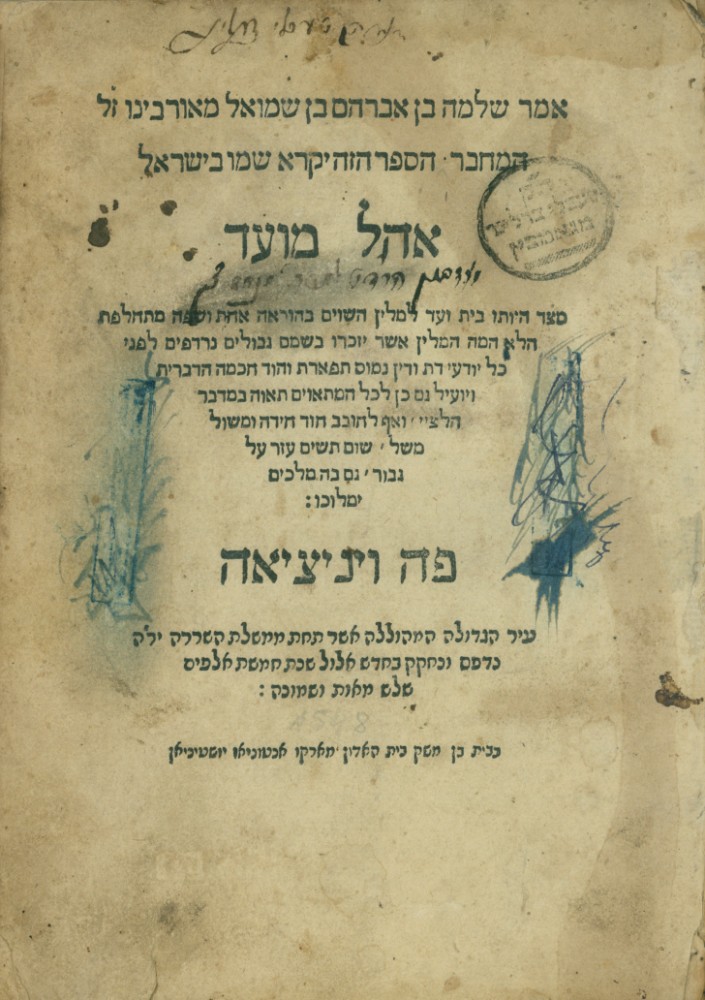 אמר שלמה בן אברהם בן שמואל מאורבינו זל
המחבר הספר הזה יקרא שמו בישראל
אהל מועד
מצד היותו בית ועד למלין השוים בהוראה אחת ושפה מתחלפת
הלא המה המלין אשר יזכרו בשמם נבולים נרדפים לפני
כל יודעי דת ודין נמוס תפארת והוד חכמה הדברית
ויועיל גם כן לכל המתאוים תאוה במדבר
הלציי ואף לחובב חוד חידה ומשול
משל שום תשים עזר על
גבור גם בה מלכים
ימלוכו :
פה ויניציאה
בעיר הגדולה המהוללה אשר תחת ממשלת השררה ילה
נדפס ונחקק בחדש אלול שנת חמשת אלפים
שלש מאות ושמונה :
בבית בן משק בית האדון מארקו אנטוניאו יושטיניאן